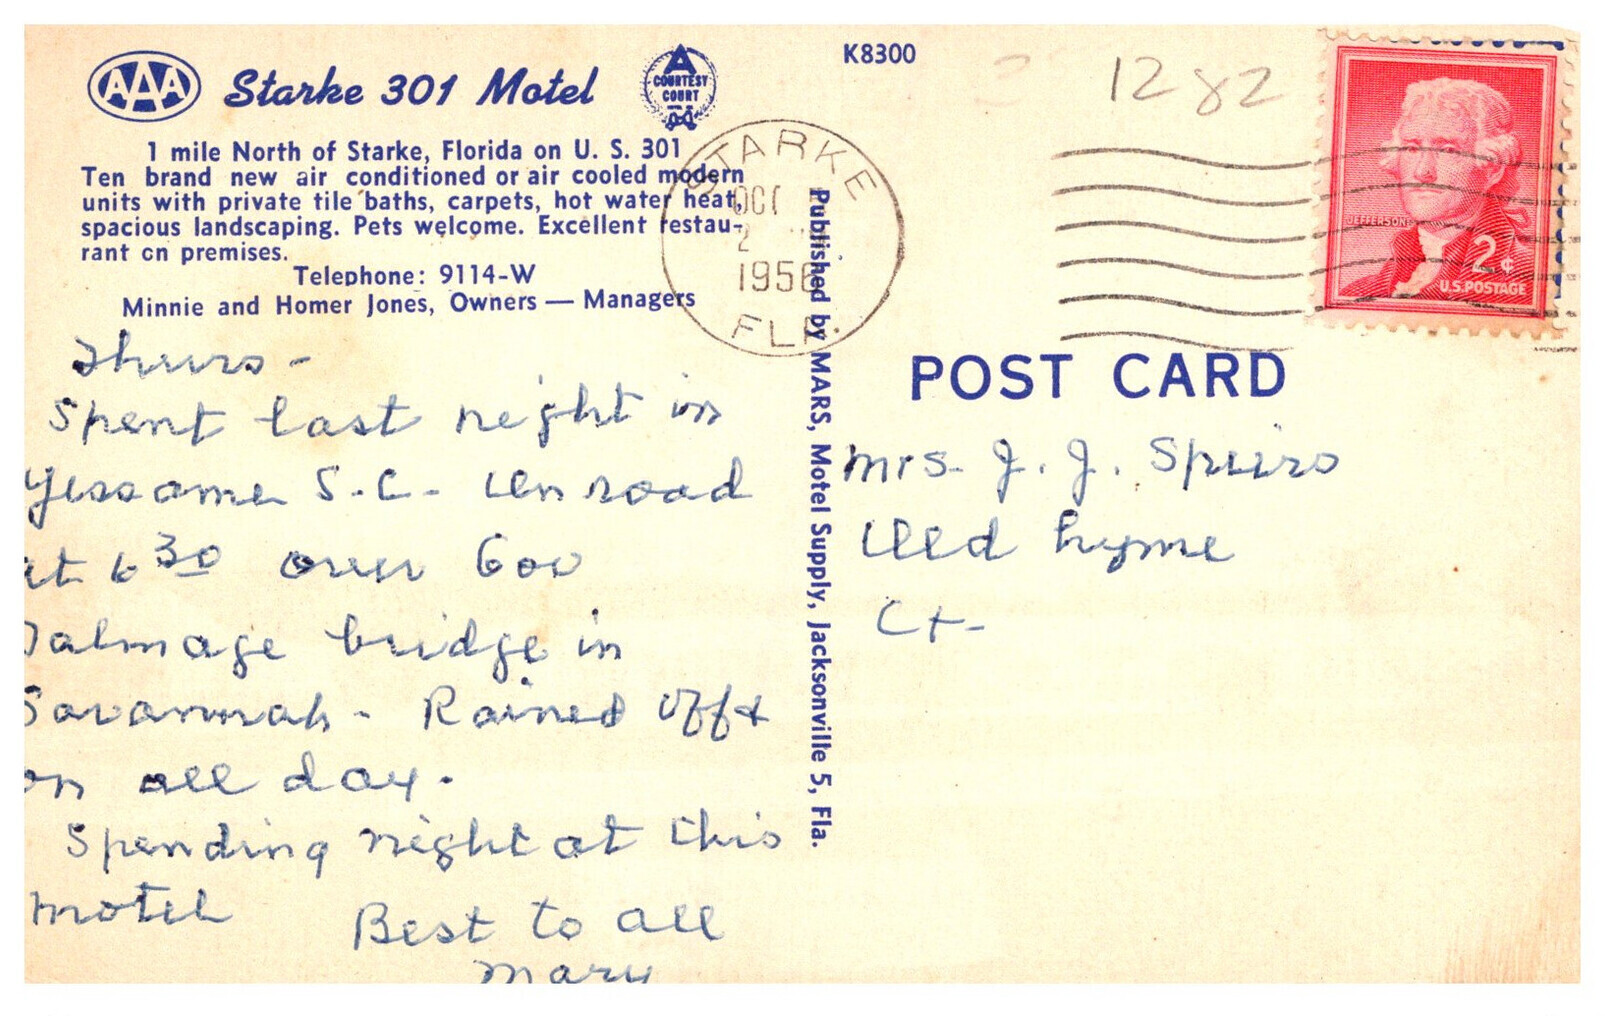 AAA
Starke 301 Motel
A
COURTESY
COURT
K8300
1282
1 mile North of Starke, Florida on U. S. 301
Ten brand new air conditioned or air cooled modern
units with private tile baths, carpets, hot water heat,
spacious landscaping. Pets welcome. Excellent restau-
rant on premises.
Telephone: 9114-W
Minnie and Homer Jones, Owners — Managers
STARKE
OCT
2
1956
FLA.
JEFFERSON
2¢
U.S. POSTAGE
Thurs -
Spent last night in
Yessame S.C. on road
at 6 30 over 600
Talmage bridge in
Savannah - Rained off &
on all day.
Spending night at this
motel
Best to all
Mary
Published by MARS, Motel Supply, Jacksonville 5, Fla.
POST CARD
Mrs. J. J. Speirs
Old Lyme
Ct-